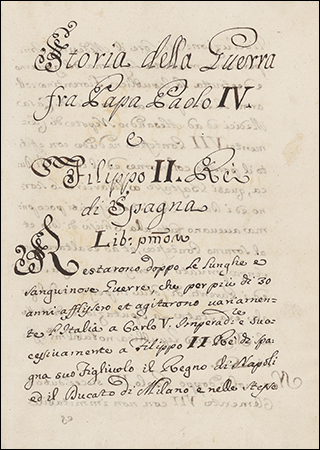 Storia della Guerra
fra Papa Paolo IV.
e
Filippo II. Re
di Spagna
Lib: pmo
Restarono doppo le lunghe e
sanguinose Guerre, che per più di 30
anni afflissero et agitarono variamen
te l'Italia a Carlo V. Imperadle e suc
cessivamente a Filippo II Rè di Spa
gna suo figliuolo il Regno di Napoli
ed il Ducato di Milano e nelle